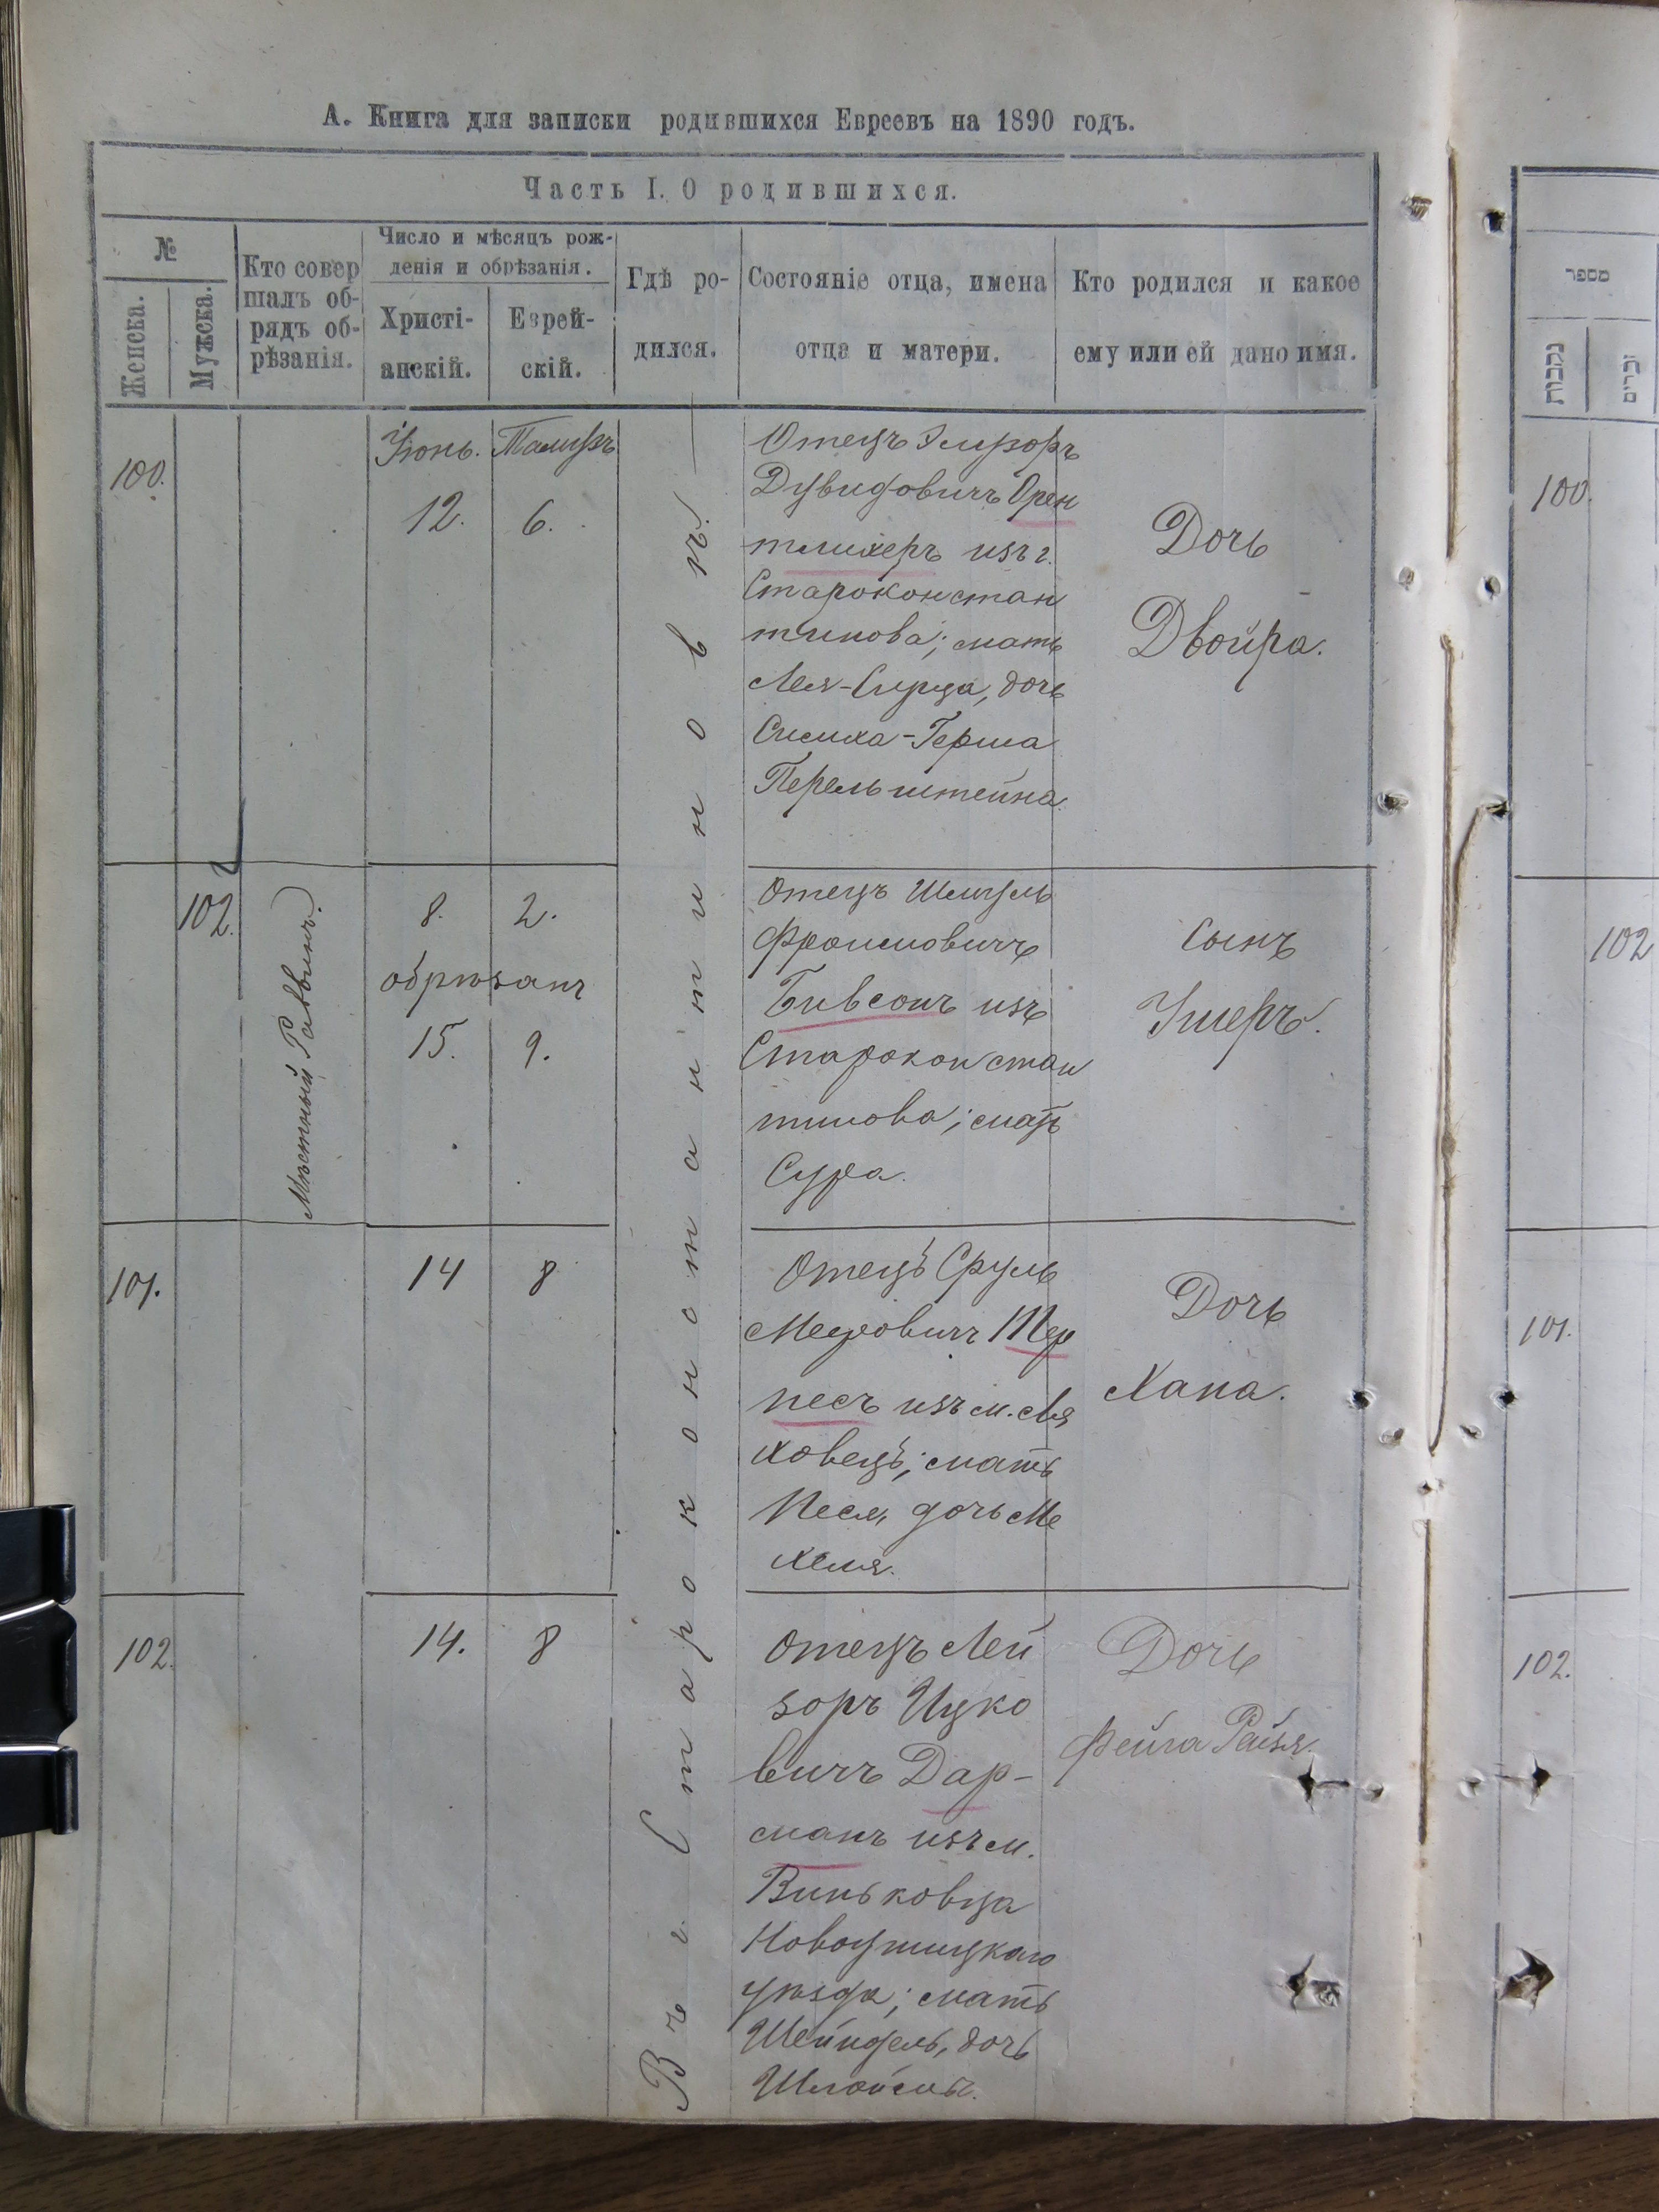 А. Книга для записки родившихся Евреевъ на 1890 годъ.
Часть I. О родившихся.
№
Женска.
Мужска.
Кто совер
шалъ об-
рядъ об-
рѣзанія.
Число и мѣсяцъ рож-
денія и обрѣзанія.
Христі-
анскій.
Еврей-
скій.
Гдѣ ро-
дился.
Состояніе отца, имена
отца и матери.
Кто родился и какое
ему или ей дано имя.
Въ г. Староконстантиновѣ.
100.
Іюнь. Тамузъ
12. 6.
Отецъ
Дувидовичъ Орен
тлихеръ изъ г.
Староконстан
тинова; мать
Лея-Сурца, дочь
Симха-Герша
Перельштейна.
Дочь
Двойра.
102.
Мѣстный Раввинъ.
8. 2.
обрѣзанъ
15. 9.
Отецъ Шмуль
Фроимовичъ
Бивсонъ изъ
Староконстан
тинова; мать
Сура.
Сынъ
Ушеръ.
101.
14 8
Отецъ Сруль
Мееровичъ Тер
песъ изъ м. Ля
ховецъ; мать
Песя, дочь Ме
хеля.
Дочь
Хана.
102.
14. 8
Отецъ Лей
зоръ Ицко
вичъ Дар-
манъ изъ м.
Виньковца
Новоушицкаго
уѣзда; мать
Шейндель, дочь
Шлоймы.
Дочь
Фейга Рейзя.
מספר
נקבות
זכרים
100.
102
101.
102.